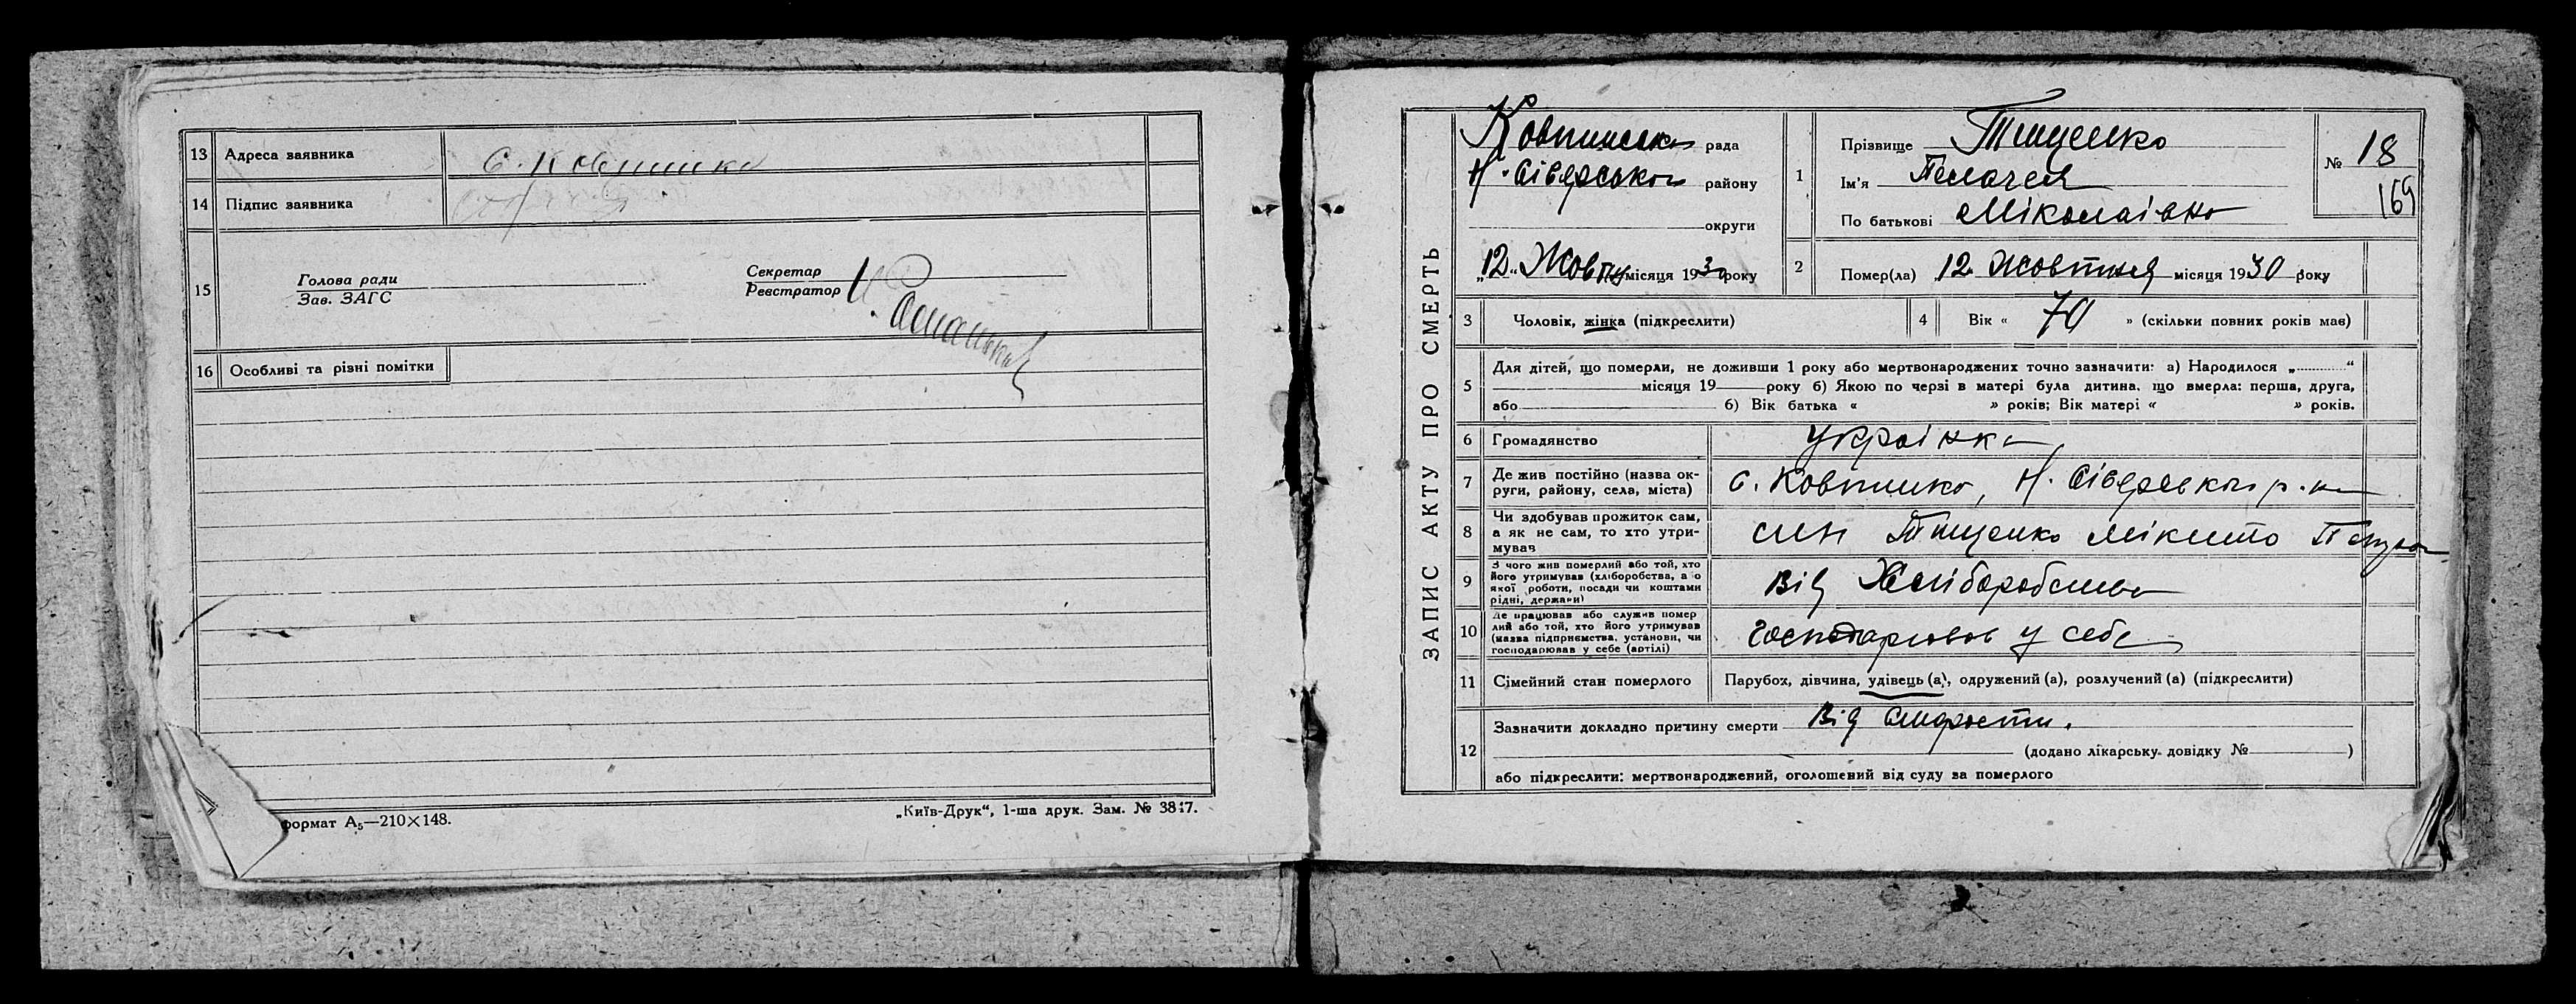 13 Адреса заявника с. Ковпинка
14 Підпис заявника
15 Голова ради
Зав. ЗАГС
Секретар
Реєстратор
16 Особливі та різні помітки
формат А5—210×148.
„Київ-Друк“, 1-ша друк. Зам. № 3847.
ЗАПИС АКТУ ПРО СМЕРТЬ
Ковпинська рада
Н. Сіверського району
округи
„12“ Жовтня місяця 1930 року
1 Прізвище Тищенко
Ім'я Пелагея
По батькові Міколаівна
№ 18
169
2 Помер(ла) 12 Жовтня місяця 1930 року
3 Чоловік, жінка (підкреслити)
4 Вік « 70 » (скільки повних років має)
5 Для дітей, що померли, не доживши 1 року або мертвонароджених точно зазначити: а) Народилося „ “
місяця 19 року б) Якою по черзі в матері була дитина, що вмерла: перша, друга,
або б) Вік батька « » років; Вік матері « » років.
6 Громадянство українка
7 Де жив постійно (назва ок-
руги, району, села, міста) с. Ковпинка, Н. Сіверського р-на
8 Чи здобував прожиток сам,
а як не сам, то хто утри-
мував син Тищенко Мікита
9 З чого жив померлий або той, хто
його утримував (хліборобства, а о
якої роботи, посади чи коштами
рідні, держави) Від Хліборобства
10 Де працював або служив помер
лий або той, хто його утримував
(назва підприємства, установи, чи
господарював у себе (артілі) господарював у себе
11 Сімейний стан померлого Парубок, дівчина, удівець (а), одружений (а), розлучений (а) (підкреслити)
12 Зазначити докладно причину смерти Від старости.
(додано лікарську довідку № )
або підкреслити: мертвонароджений, оголошений від суду за померлого